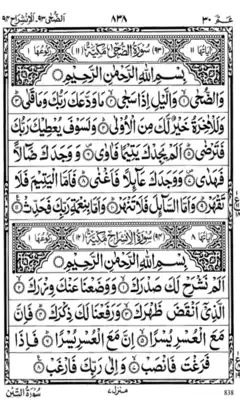 عـم ٣٠ ٨٣٨ الضحى ٩٣، الانشراح ٩٤
اٰيَاتُهَا ١١ (٩٣) سُوْرَةُ الضُّحٰى مَكِّيَّةٌ (١١) رُكُوْعُهَا ١
بِسْمِ اللّٰهِ الرَّحْمٰنِ الرَّحِيْمِ
وَالضُّحٰى ۙ وَالَّيْلِ اِذَا سَجٰى ۙ مَا وَدَّعَكَ رَبُّكَ وَمَا قَلٰى ۙ
وَلَلْاٰخِرَةُ خَيْرٌ لَّكَ مِنَ الْاُوْلٰى ۙ وَلَسَوْفَ يُعْطِيْكَ رَبُّكَ
فَتَرْضٰى ۙ اَلَمْ يَجِدْكَ يَتِيْمًا فَاٰوٰى ۪ وَوَجَدَكَ ضَآلًّا
فَهَدٰى ۪ وَوَجَدَكَ عَآئِلًا فَاَغْنٰى ۙ فَاَمَّا الْيَتِيْمَ فَلَا
تَقْهَرْ ۙ وَاَمَّا السَّآئِلَ فَلَا تَنْهَرْ ۙ وَاَمَّا بِنِعْمَةِ رَبِّكَ فَحَدِّثْ
اٰيَاتُهَا ٨ (٩٤) سُوْرَةُ الْاِنْشِرَاحِ مَكِّيَّةٌ (١٢) رُكُوْعُهَا ١
بِسْمِ اللّٰهِ الرَّحْمٰنِ الرَّحِيْمِ
اَلَمْ نَشْرَحْ لَكَ صَدْرَكَ ۙ وَوَضَعْنَا عَنْكَ وِزْرَكَ ۙ
الَّذِيْٓ اَنْقَضَ ظَهْرَكَ ۙ وَرَفَعْنَا لَكَ ذِكْرَكَ ۙ فَاِنَّ
مَعَ الْعُسْرِ يُسْرًا ۙ اِنَّ مَعَ الْعُسْرِ يُسْرًا ۙ فَاِذَا
فَرَغْتَ فَانْصَبْ ۙ وَاِلٰى رَبِّكَ فَارْغَبْ
سُوْرَةُ التِّيْن منزل ٧ 838